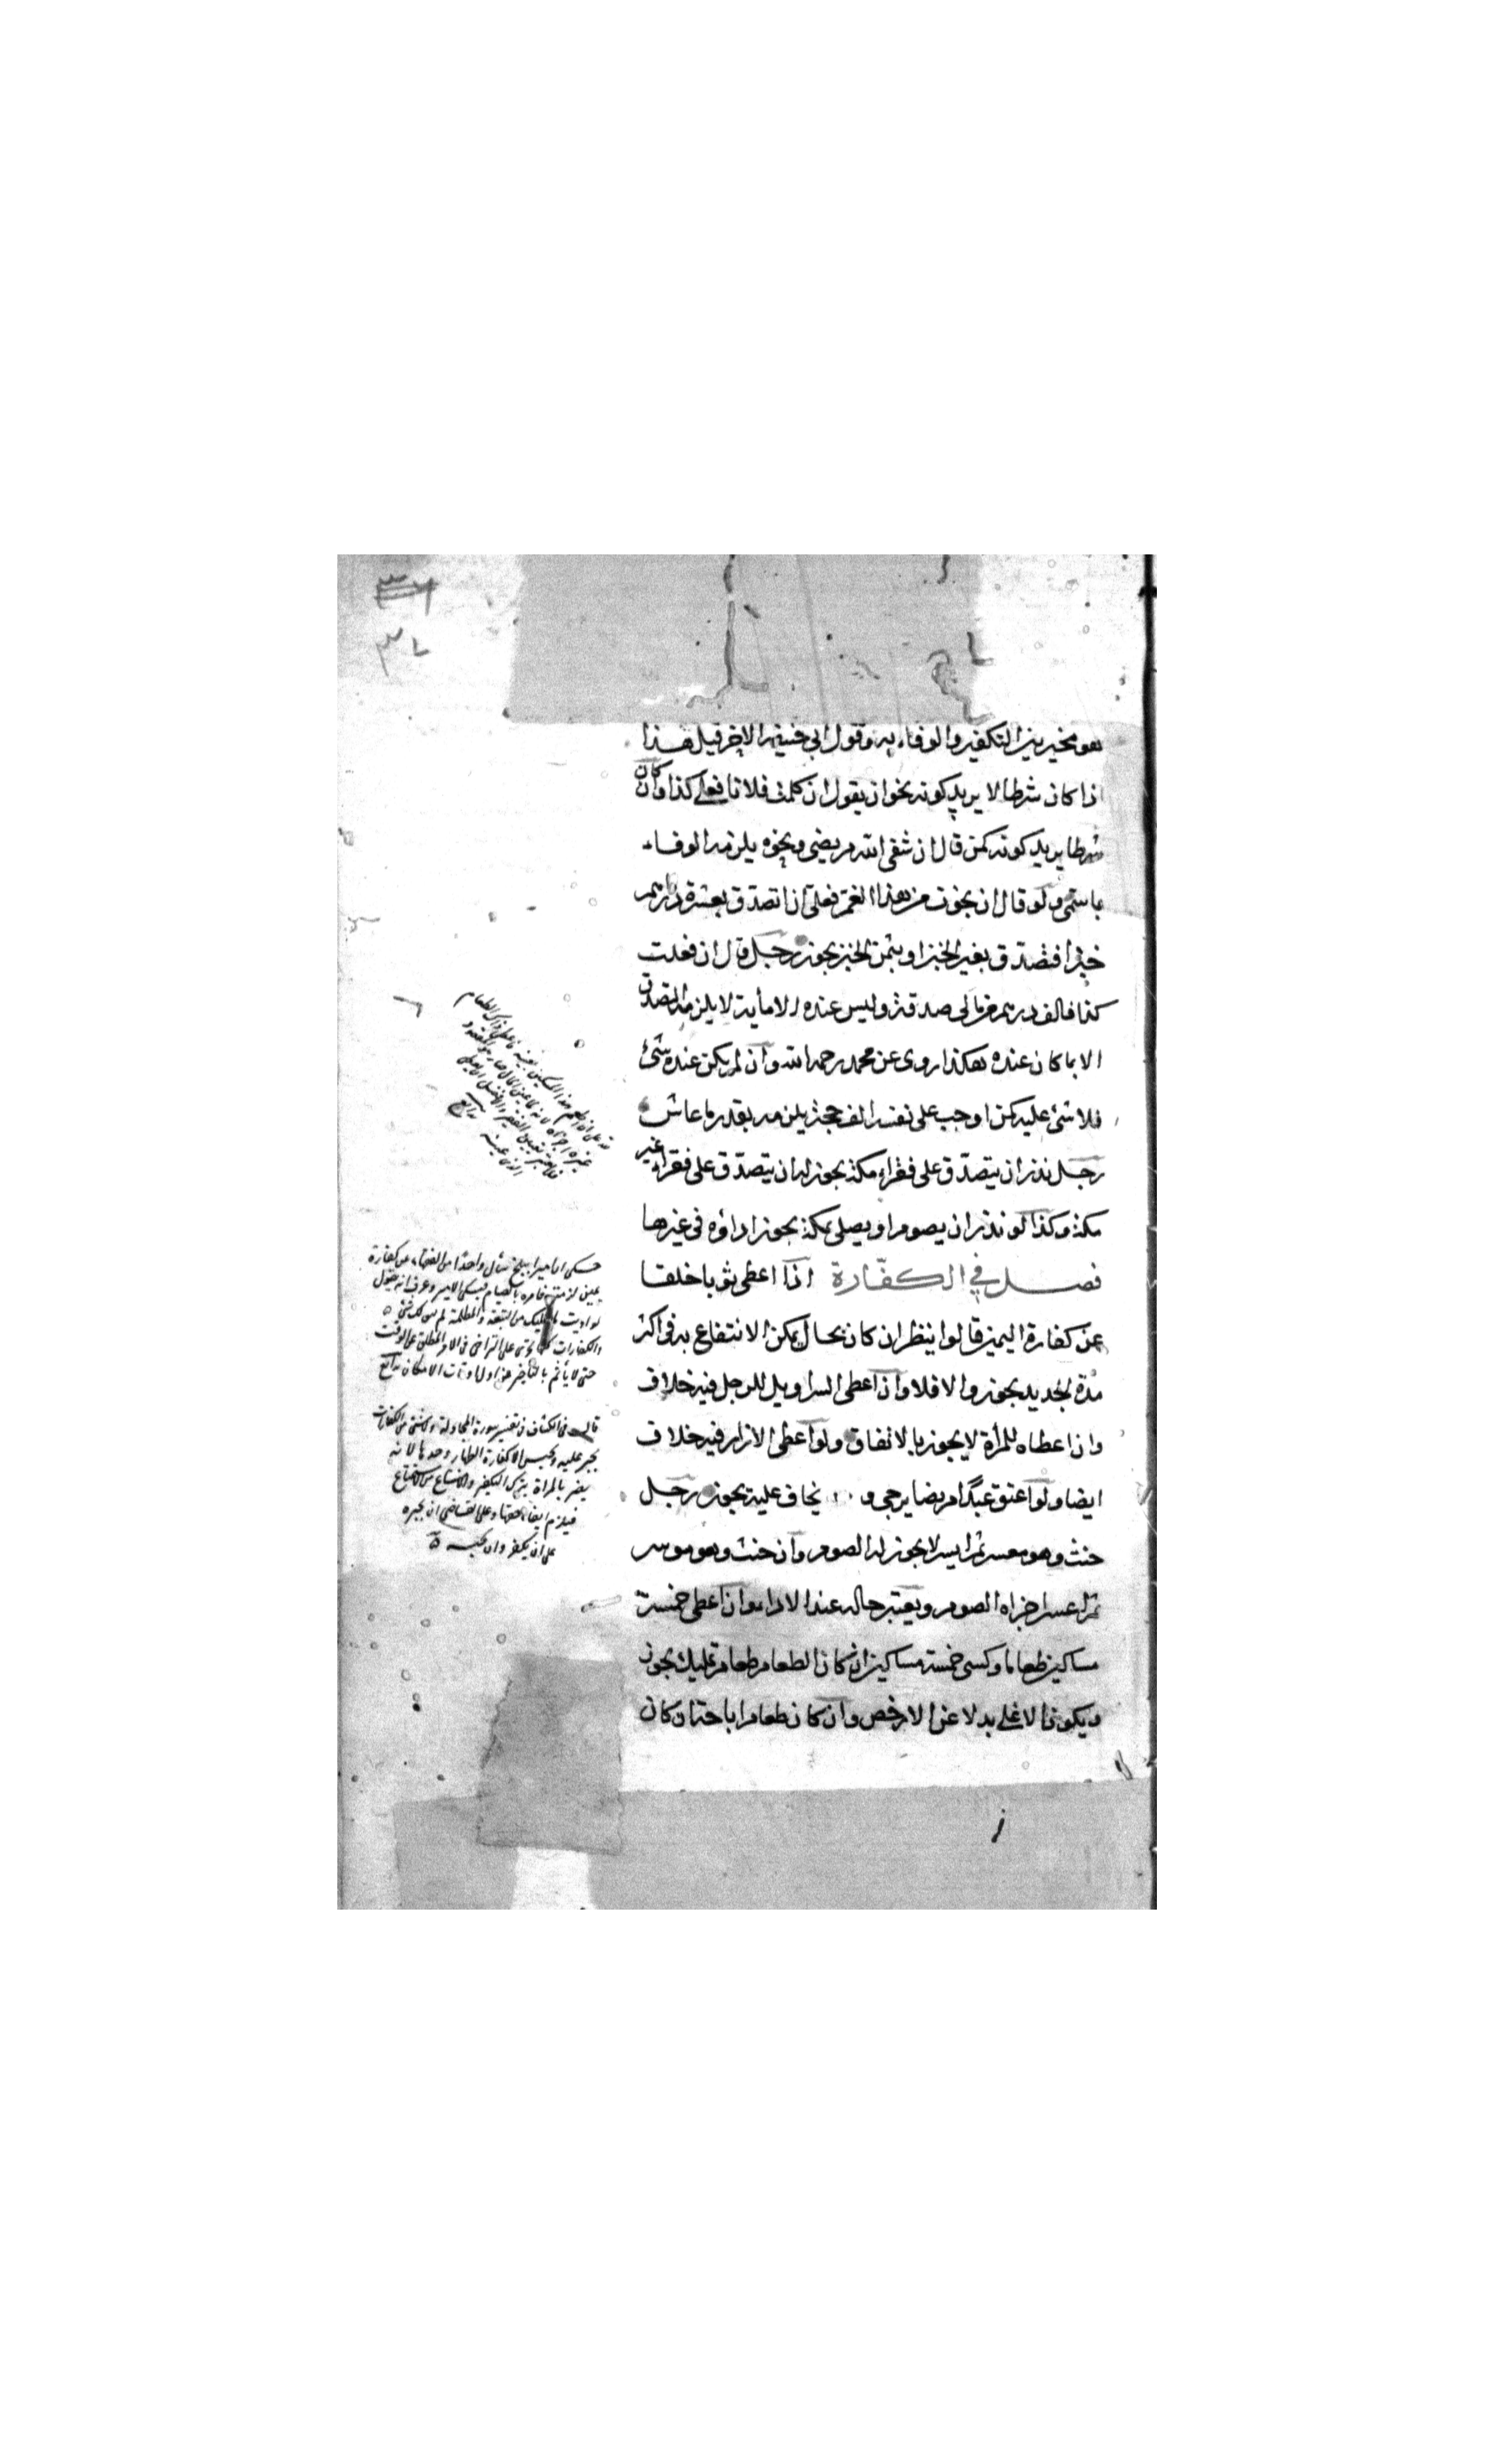 ٣٧
هو مخير بين التكفير والوفاء به وقول ابي حنيفة الاخر قيل هذا
اذا كان شرطا لا يريد كونه نحو ان يقول ان كلمت فلانا فعلي كذا وان كان
شرطا يريد كونه كمن قال ان شفى الله مريضي ونحوه يلزمه الوفاء
بما سمى ولو قال ان نجوت من هذا الغم فعلي ان اتصدق بعشرة دراهم
خبزا فتصدق بغير الخبز او بثمن الخبز يجوز رجل قال ان فعلت
كذا فالف درهم من مالي صدقة وليس عنده الا مأية لا يلزمه التصدق
الا بما كان عنده هكذا روى عن محمد رحمه الله وان لم يكن عنده شئ
فلا شئ عليه كمن اوجب على نفسه الف حجة يلزمه بقدر ما عاش
رجل نذر ان يتصدق على فقراء مكة يجوز له ان يتصدق على فقراء غير
مكة وكذا لو نذر ان يصوم او يصلي بمكة يجوز اداؤه في غيرها
فصل في الكفّارة اذا اعطى ثوبا خلقا
عن كفارة اليمين قالوا ينظر ان كان بحال يمكن الانتفاع به في اكثر
مدة الجديد يجوز والا فلا وان اعطى السراويل للرجل فيه خلاف
وان اعطاه للمرأة لا يجوز بالاتفاق ولو اعطى الازار فيه خلاف
ايضا ولو اعتق عبدا مريضا يرجى و يخاف عليه يجوز رجل
حنث وهو معسر ثم ايسر لا يجوز له الصوم وان حنث وهو موسر
ثم اعسر اجزاه الصوم ويعتبر حاله عند الاداء وان اعطى خمسة
مساكين طعاما وكسى خمسة مساكين ان كان الطعام طعام تمليك يجوز
ويكون الاغلى بدلا عن الارخص وان كان طعام اباحة ان كان
حكى ان اميرا ببلخ سأل واحدا من الفقهاء عن كفارة
يمين لزمته فامره بالصيام فبكى الامير وعرف انه يقول
لو اديت ما عليك من التبعة والمظلمة لم يبق لك شئ
والكفارات كلها على التراخي في الامر المطلق عن الوقت
حتى لا يأثم بالتأخير عن اول اوقات الامكان بدائع
قال في الكشاف في تفسير سورة المجادلة ولا شئ من الكفارات
يجبر عليه ويحبس الا كفارة الظهار وحدها لانه
يضر بالمراة بترك التكفير والامتناع من الاستمتاع
فيلزم ايفاء حقها وعلى القاضي ان يجبره
على ان يكفر وان يحبسه